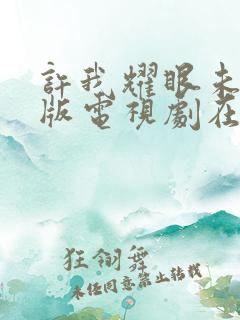 許我耀眼未
版電視劇在
狂翎舞
未經同意禁止转载